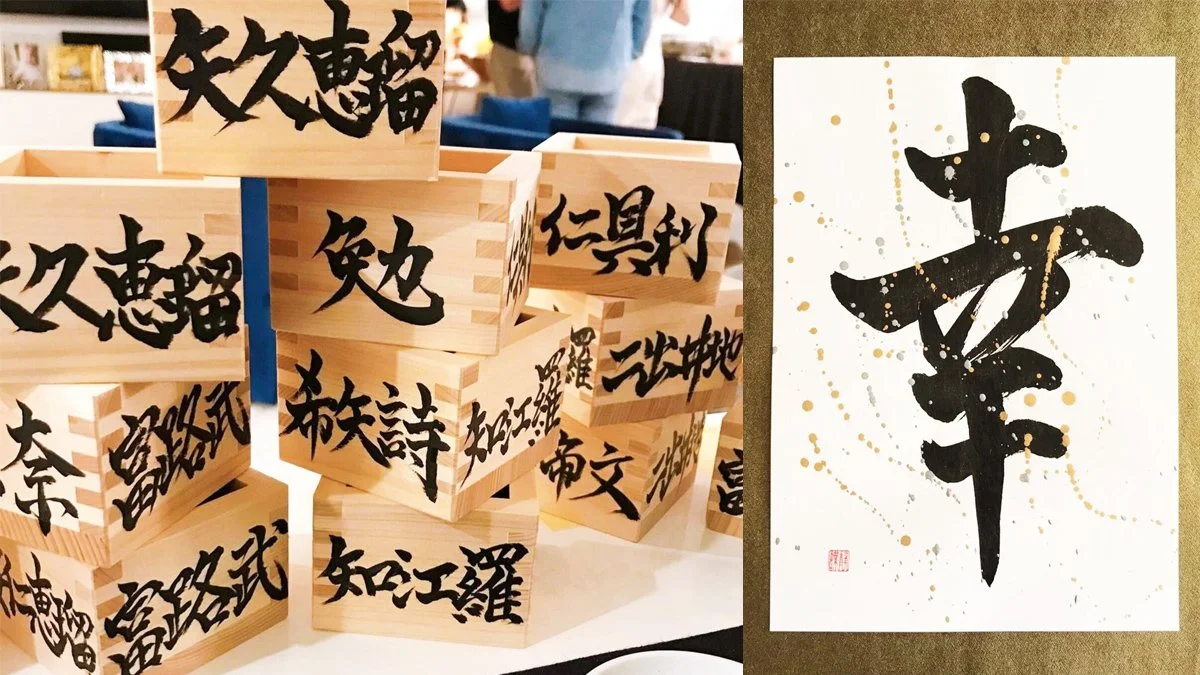 矢久恵瑠
矢久恵瑠
勉
仁具利
奈
富路武
希矢詩
知江羅
羅
帝文
恵瑠
富路武
知江羅
富
幸